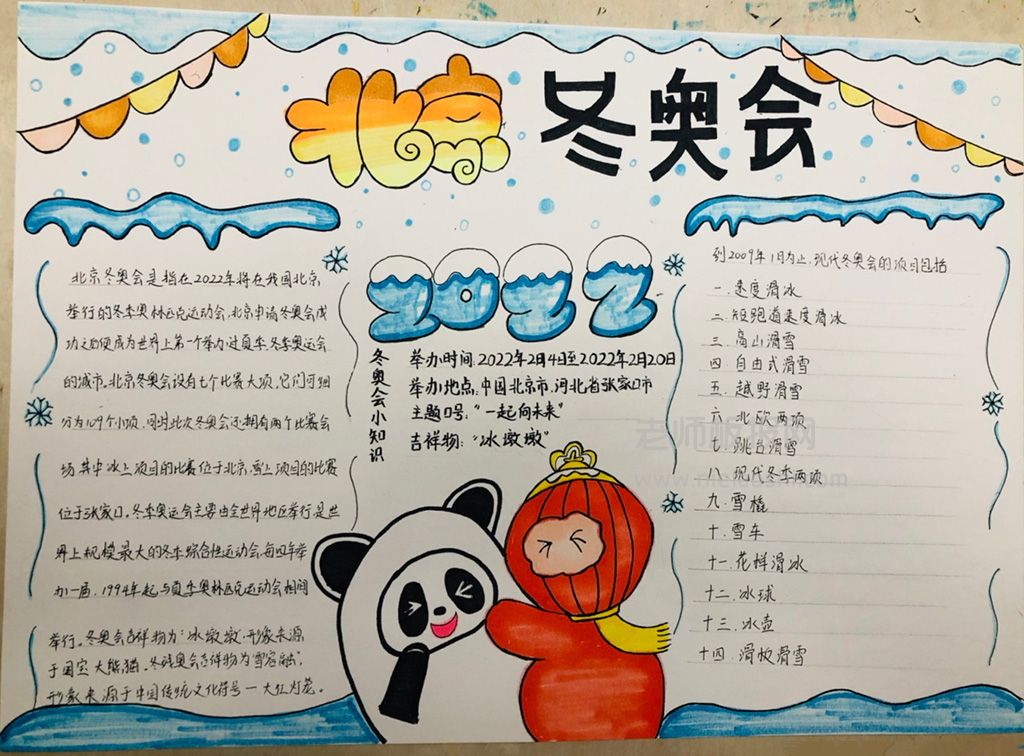 北京冬奥会
北京冬奥会是指在2022年将在我国北京
举行的冬季奥林匹克运动会,北京申请冬奥会成
功之后便成为世界上第一个举办过夏季、冬季奥运会
的城市。北京冬奥会设有七个比赛大项,它们可细
分为109个小项,同时此次冬奥会还拥有两个比赛会
场.其中冰上项目的比赛位于北京,雪上项目的比赛
位于张家口。冬季奥运会主要由全世界地区举行,是世
界上规模最大的冬季综合性运动会,每四年举
办一届,1994年起与夏季奥林匹克运动会相间
举行。冬奥会吉祥物为“冰墩墩”形象来源
于国宝大熊猫。冬残奥会吉祥物为“雪容融”,
形象来源于中国传统文化符号一大红灯笼。
2022
冬奥会小知识
举办时间:2022年2月4日至2022年2月20日
举办地点:中国北京市、河北省张家口市
主题口号:“一起向未来”
吉祥物:“冰墩墩”
到2009年1月为止,现代冬奥会的项目包括
一.速度滑冰
二.短跑道速度滑冰
三.高山滑雪
四.自由式滑雪
五.越野滑雪
六.北欧两项
七.跳台滑雪
八.现代冬季两项
九.雪橇
十.雪车
十一.花样滑冰
十二.冰球
十三.冰壶
十四.滑板滑雪
老师板报网